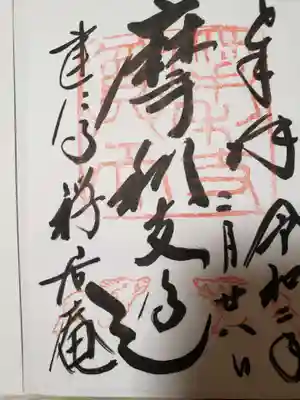 奉拝 令和二年
二月廿八日
摩利支尊天
建仁寺禅居庵